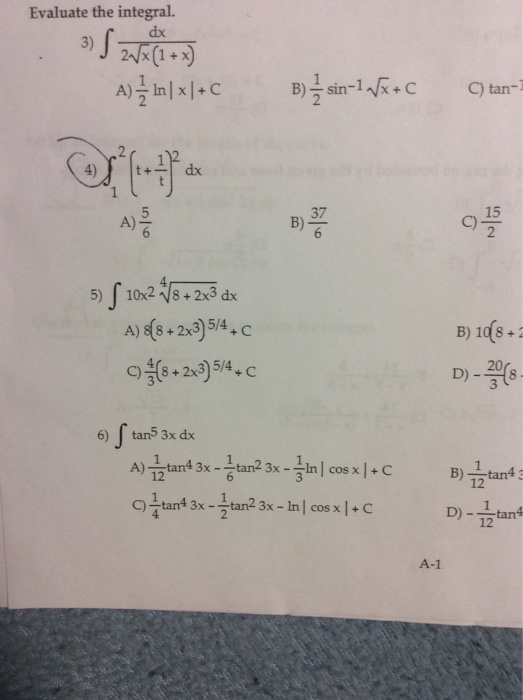 Evaluate the integral.
3) ∫ dx / 2√x(1 + x)
A) 1/2 ln | x | + C B) 1/2 sin-1 √x + C C) tan-1
4) ∫₁² (t + 1/t)² dx
A) 5/6 B) 37/6 C) 15/2
5) ∫ 10x2 ∜8 + 2x3 dx
A) 8(8 + 2x3) 5/4 + C B) 10(8 +
C) 4/3(8 + 2x3) 5/4 + C D) - 20/3(8
6) ∫ tan5 3x dx
A) 1/12 tan4 3x - 1/6 tan2 3x - 1/3 ln | cos x | + C B) 1/12 tan4
C) 1/4 tan4 3x - 1/2 tan2 3x - ln | cos x | + C D) - 1/12 tan4
A-1